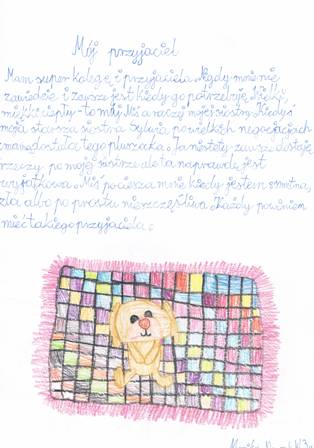 Mój przyjaciel
Mam super kolegę i przyjaciela. Nigdy mnie nie
zawiedzie i zawsze jest kiedy go potrzebuję. Wielki,
miękki i ciepły - to mój Miś a raczej mojej siostry. Kiedyś
moja starsza siostra Sylwia po wielkich negocjacjach
z mamą dostała tego pluszaka. Ja niestety zawsze dostaję
rzeczy po mojej siostrze ale ta naprawdę jest
wyjątkowa. Miś pociesza mnie kiedy jestem smutna,
zła albo po prostu nieszczęśliwa. Każdy powinien
mieć takiego przyjaciela.